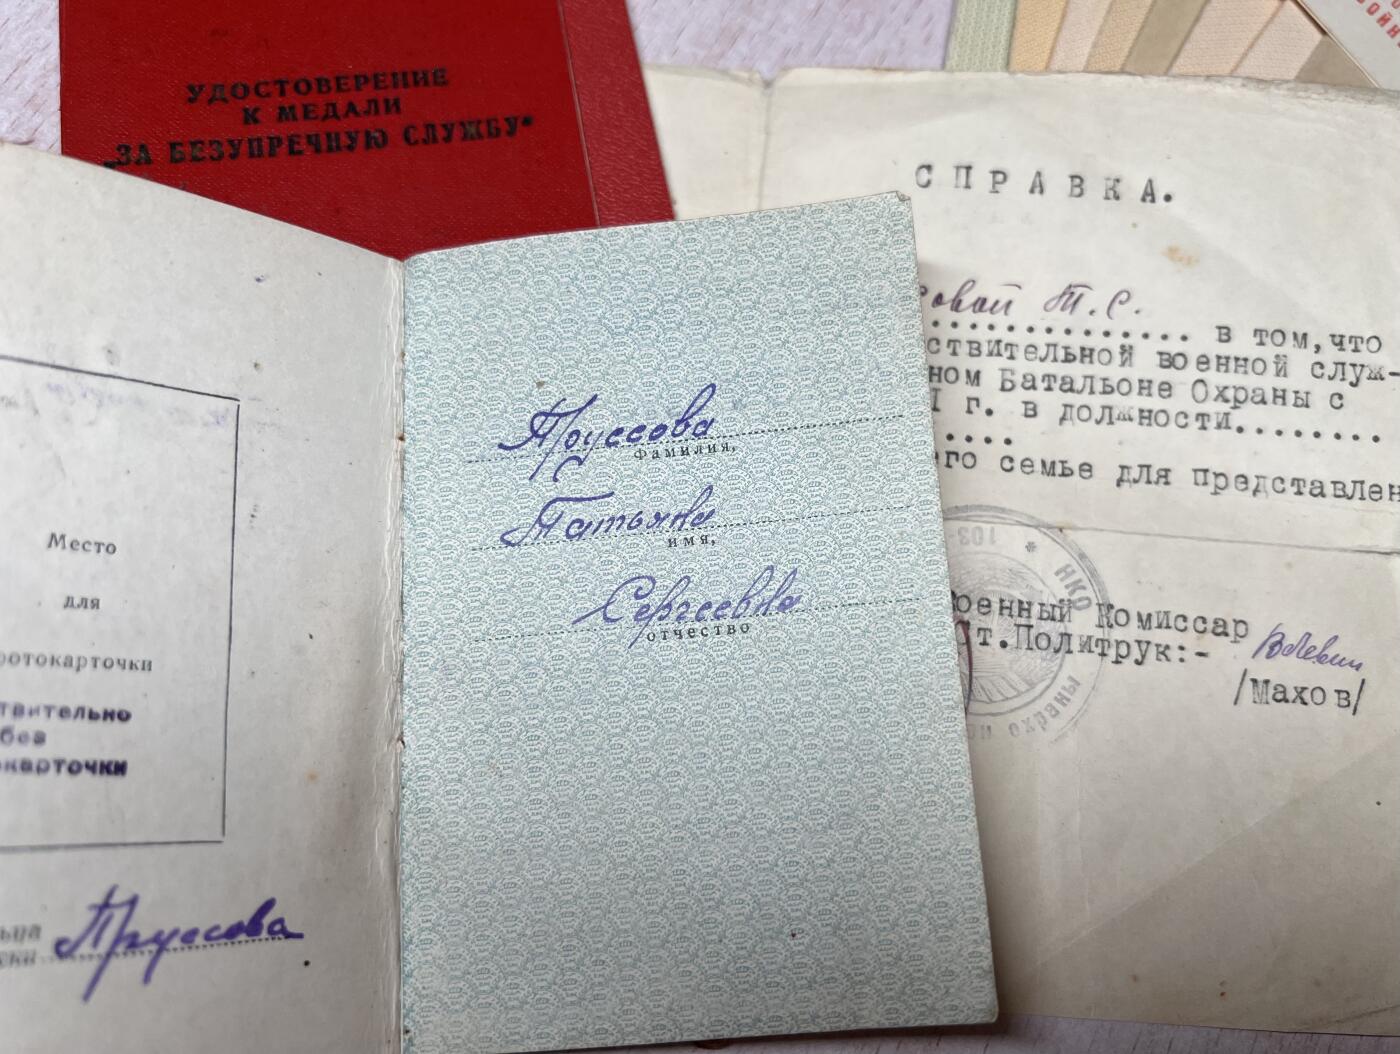 УДОСТОВЕРЕНИЕ
К МЕДАЛИ
„ЗА БЕЗУПРЕЧНУЮ СЛУЖБУ"
СПРАВКА.
совой Т. С.
в том, что
ствительной военной служ-
ном Батальоне Охраны с
1 г. в должности........
его семье для представлен
103
НКО
охраны
Военный Комиссар
Ст.Политрук:-
/Махов/
Труссова
фамилия,
Татьяна
имя,
Сергеевна
отчество
Место
для
фотокарточки
ствительно
без
карточки
ьца
Труссова